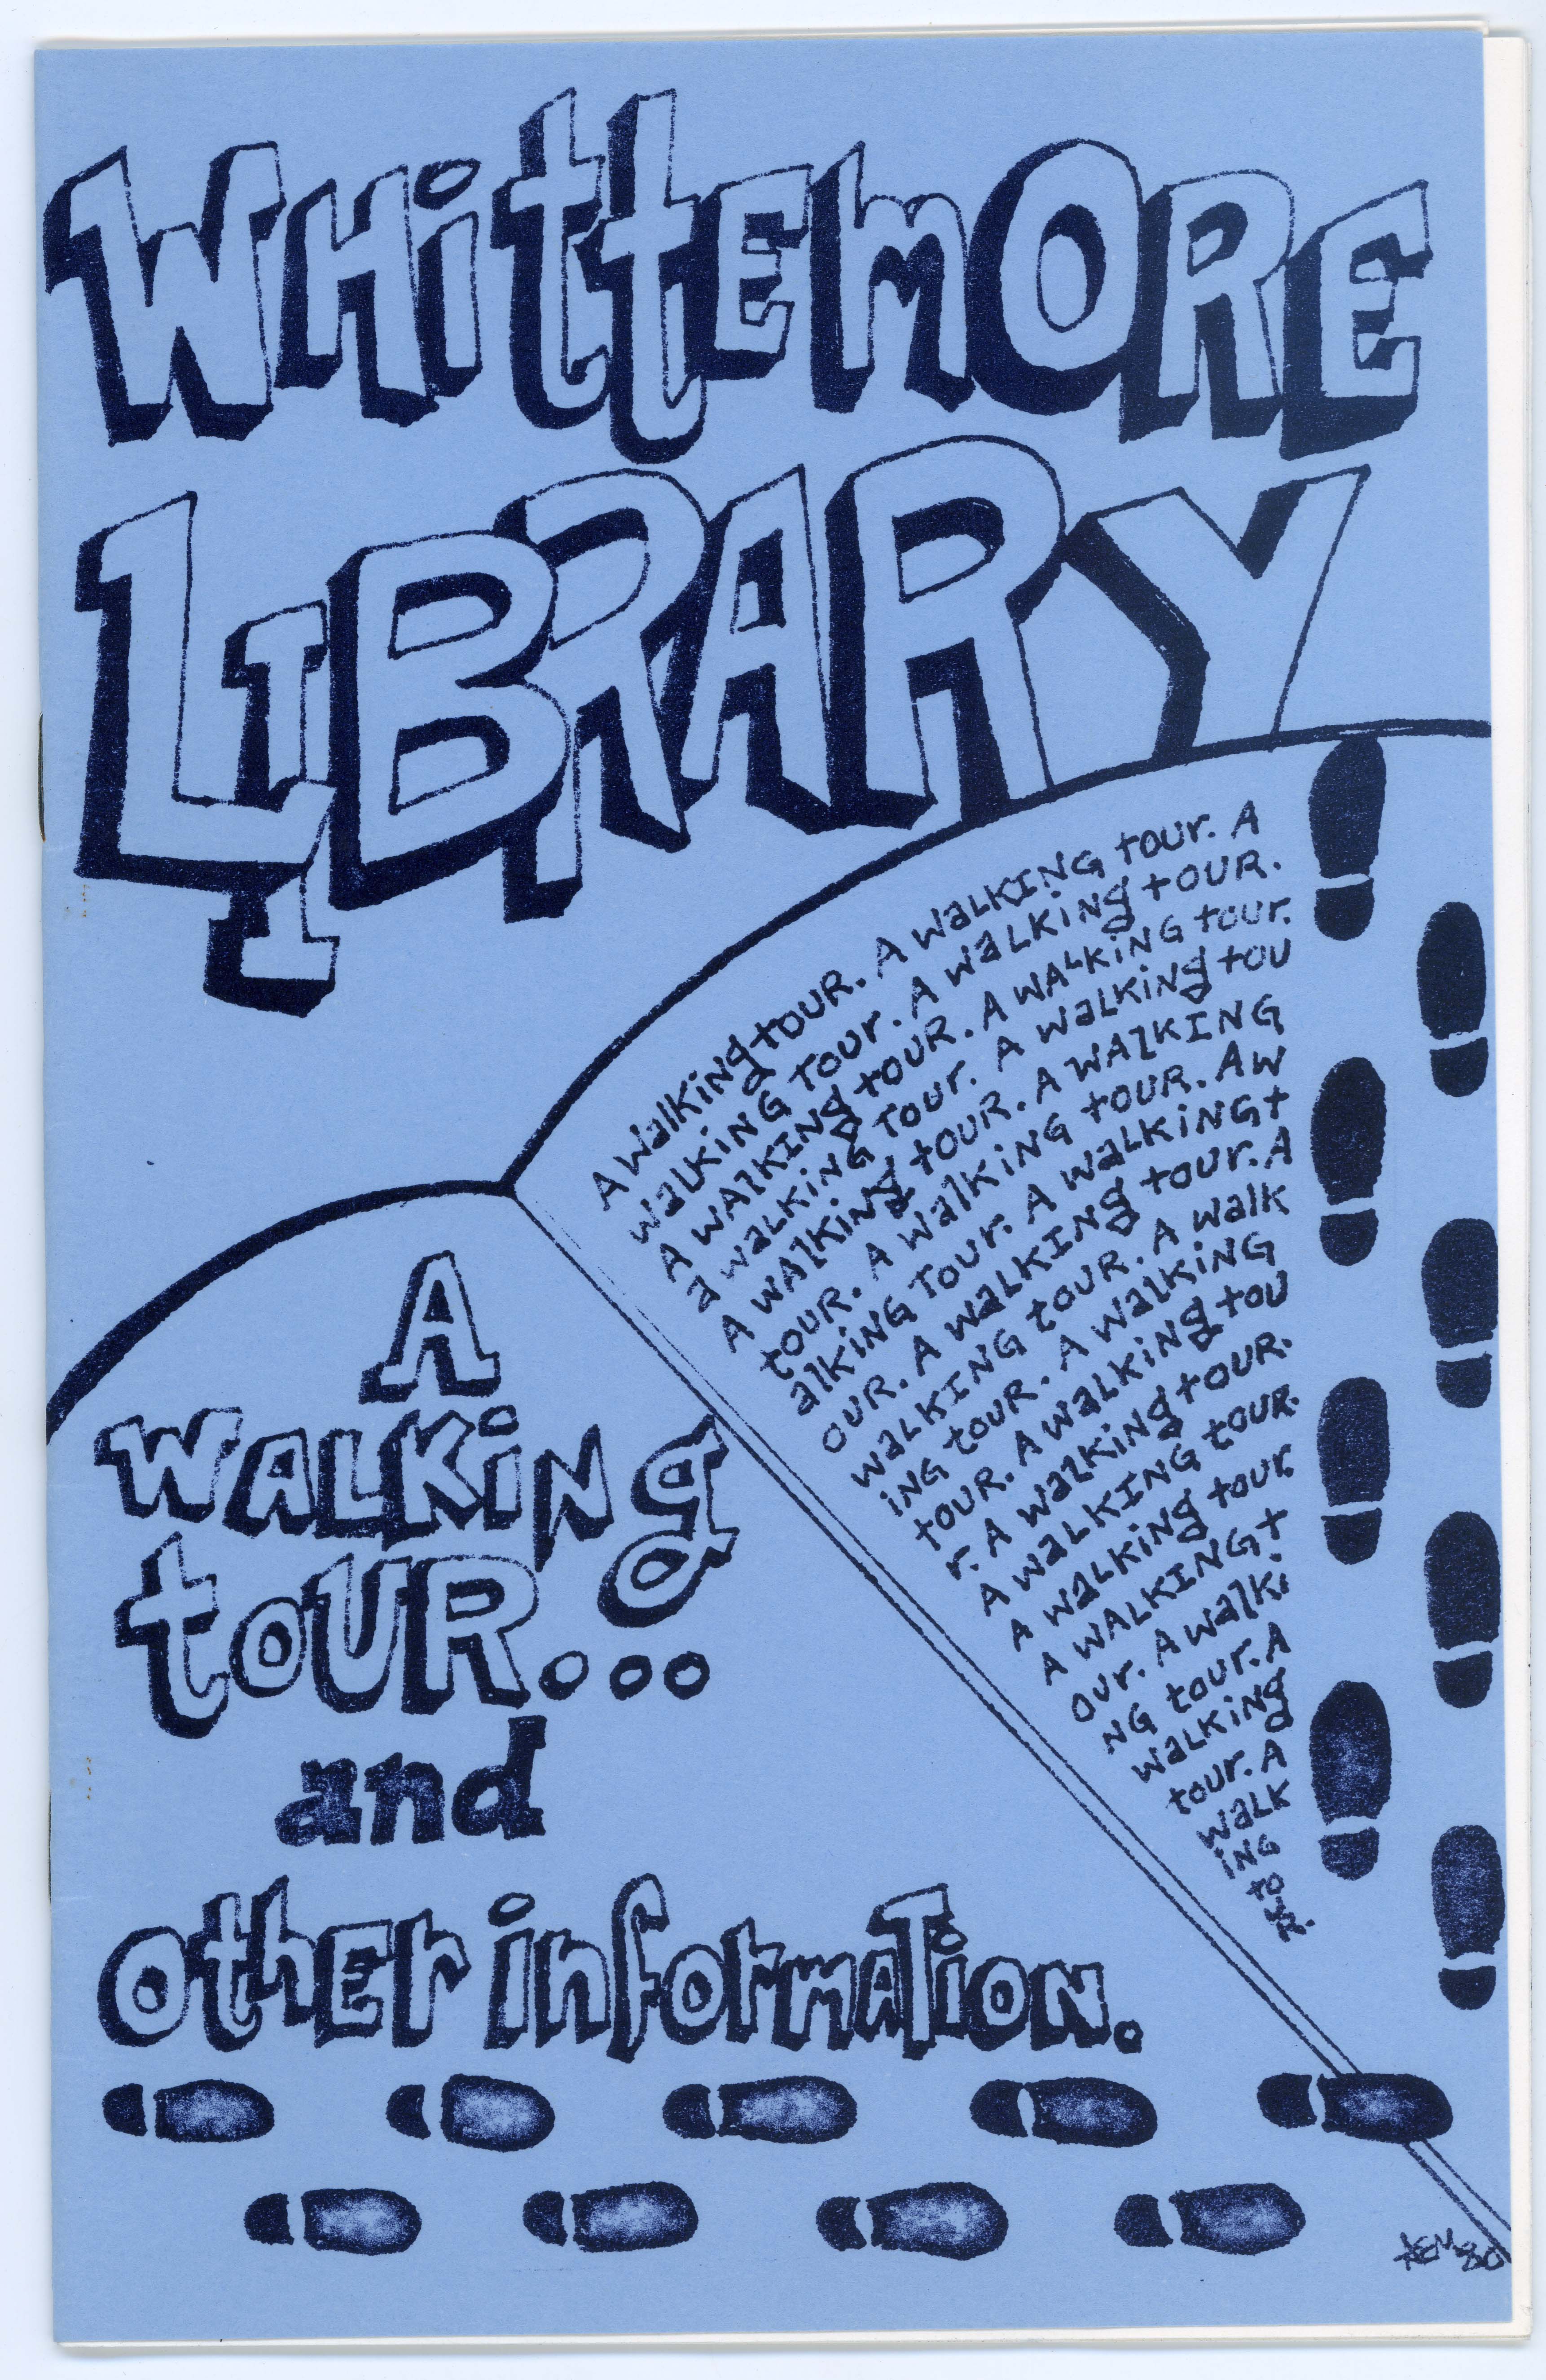 WHittEmORE
LIBRARY
A walking tOUR. A walKING tour. A
walKiNG Tour. A walking tOUR.
A WAlKINg tOUR. A WALKiNG tour.
a walKiNG Tour. A walkiNg tOU
A WAlKiNg tOUR. A WAlKING
tOUR. A walKiNG tOUR. A W
alKiNG Tour. A walKiNG t
OUR. A walKING tour. A
walKING tOUR. A walk
iNG tOUR. A walkiNG
tOUR. A walkiNg tOU
r. A walKiNg tOUR.
A walKING tOUR.
A walKiNg tOUr
A WALKING t
our. A walki
NG tour. A
walKiNg
tour. A
walk
iNG
to
UR.
A
WALKiNg
tOUR...
and
OthEr infOrmATiON.
AEM 80